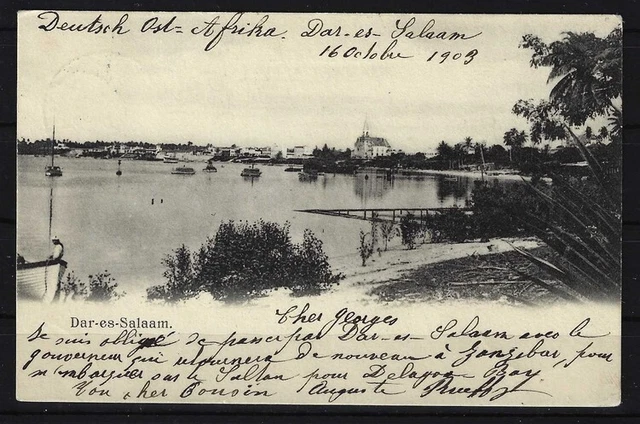 Deutsch Ost-Afrika. Dar-es-Salaam
16 Octobre 1903
Dar-es-Salaam.
Cher Georges
Je suis obligé de passer par Dar-es-Salaam avec le
gouverneur qui retournera de nouveau à Zanzebar, pour
m'embarquer sur le Sultan pour Delagoa-Bay
Ton cher Cousin Auguste